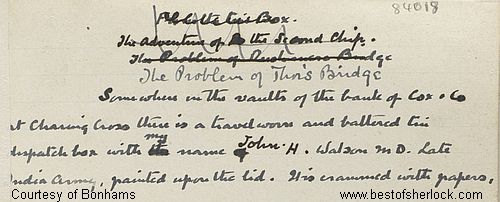 84018
The Adventure of the Second Chip.
The Problem of Rushmere Bridge
The Problem of Thor's Bridge
Somewhere in the vaults of the bank of Cox & Co
at Charing Cross there is a travel worn and battered tin
dispatch box with my name John. H. Watson M D. Late
India Army, painted upon the lid. It is crammed with papers,
Courtesy of Bonhams
www.bestofsherlock.com